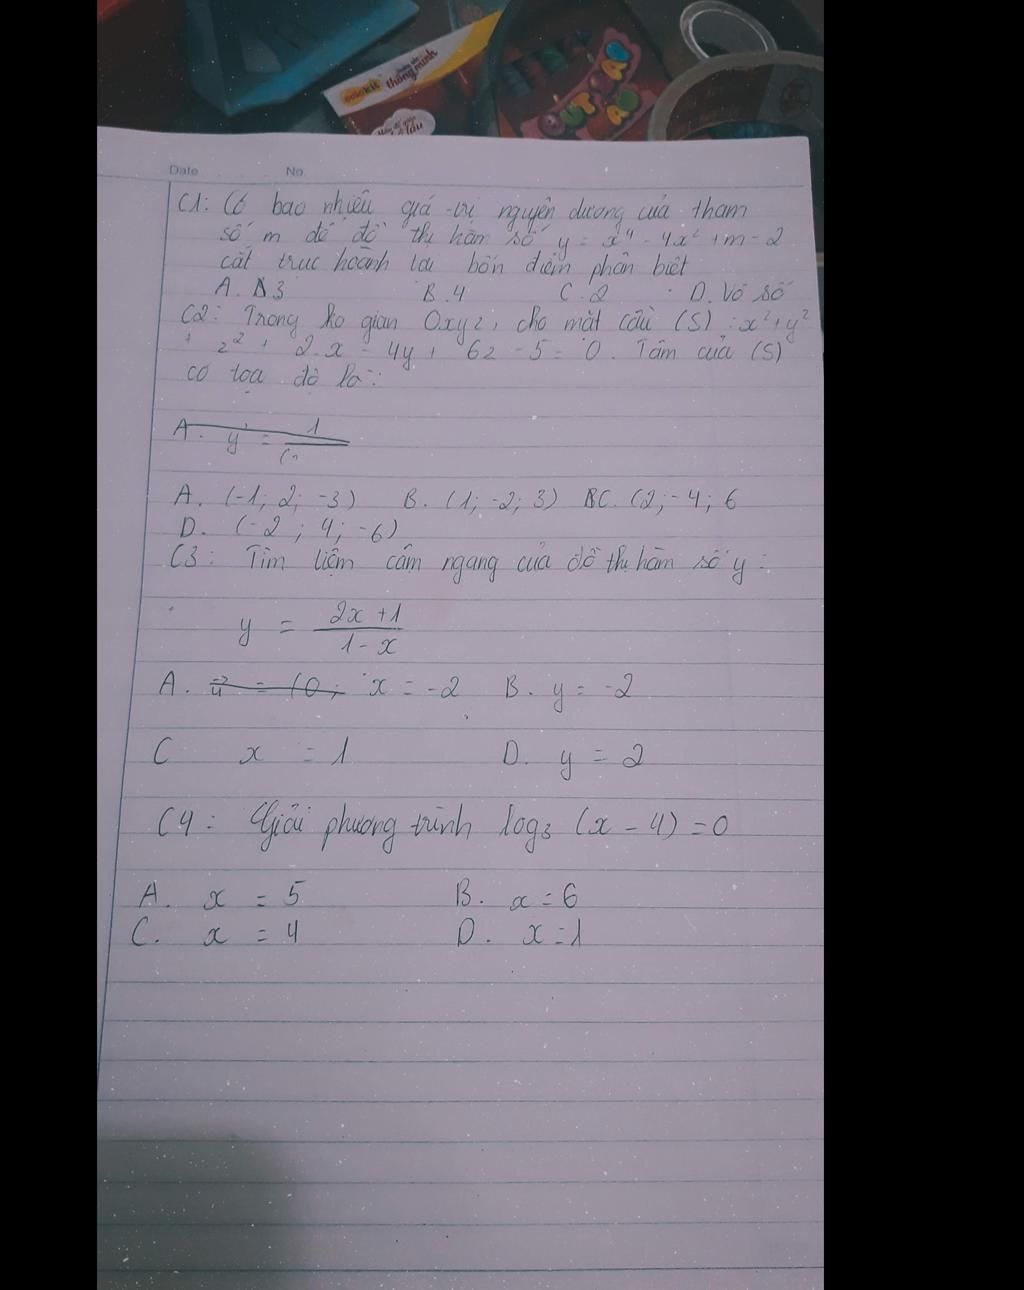 colokit
thông minh
Date No.
C1: Có bao nhiêu giá trị nguyên dương của tham
số m để đồ thị hàm số y = x⁴ - 4x² + m - 2
cắt trục hoành tại bốn điểm phân biệt
A. 3 B. 4 C. 2 D. Vô số
C2: Trong ko gian Oxyz, cho mặt cầu (S) : x² + y²
+ z² + 2.x - 4y + 6z - 5 = 0. Tâm của (S)
có tọa độ là:
A. y' = 1
A. (-1; 2; -3) B. (1; -2; 3) C. (2; -4; 6
D. (-2; 4; -6)
C3: Tìm tiệm cấm ngang của đồ thị hàm số y =
y = (2x + 1) / (1 - x)
A. x = -2 B. y = -2
C x = 1 D. y = 2
C4: Giải phương trình log₃ (x - 4) = 0
A. x = 5 B. x = 6
C. x = 4 D. x = 1